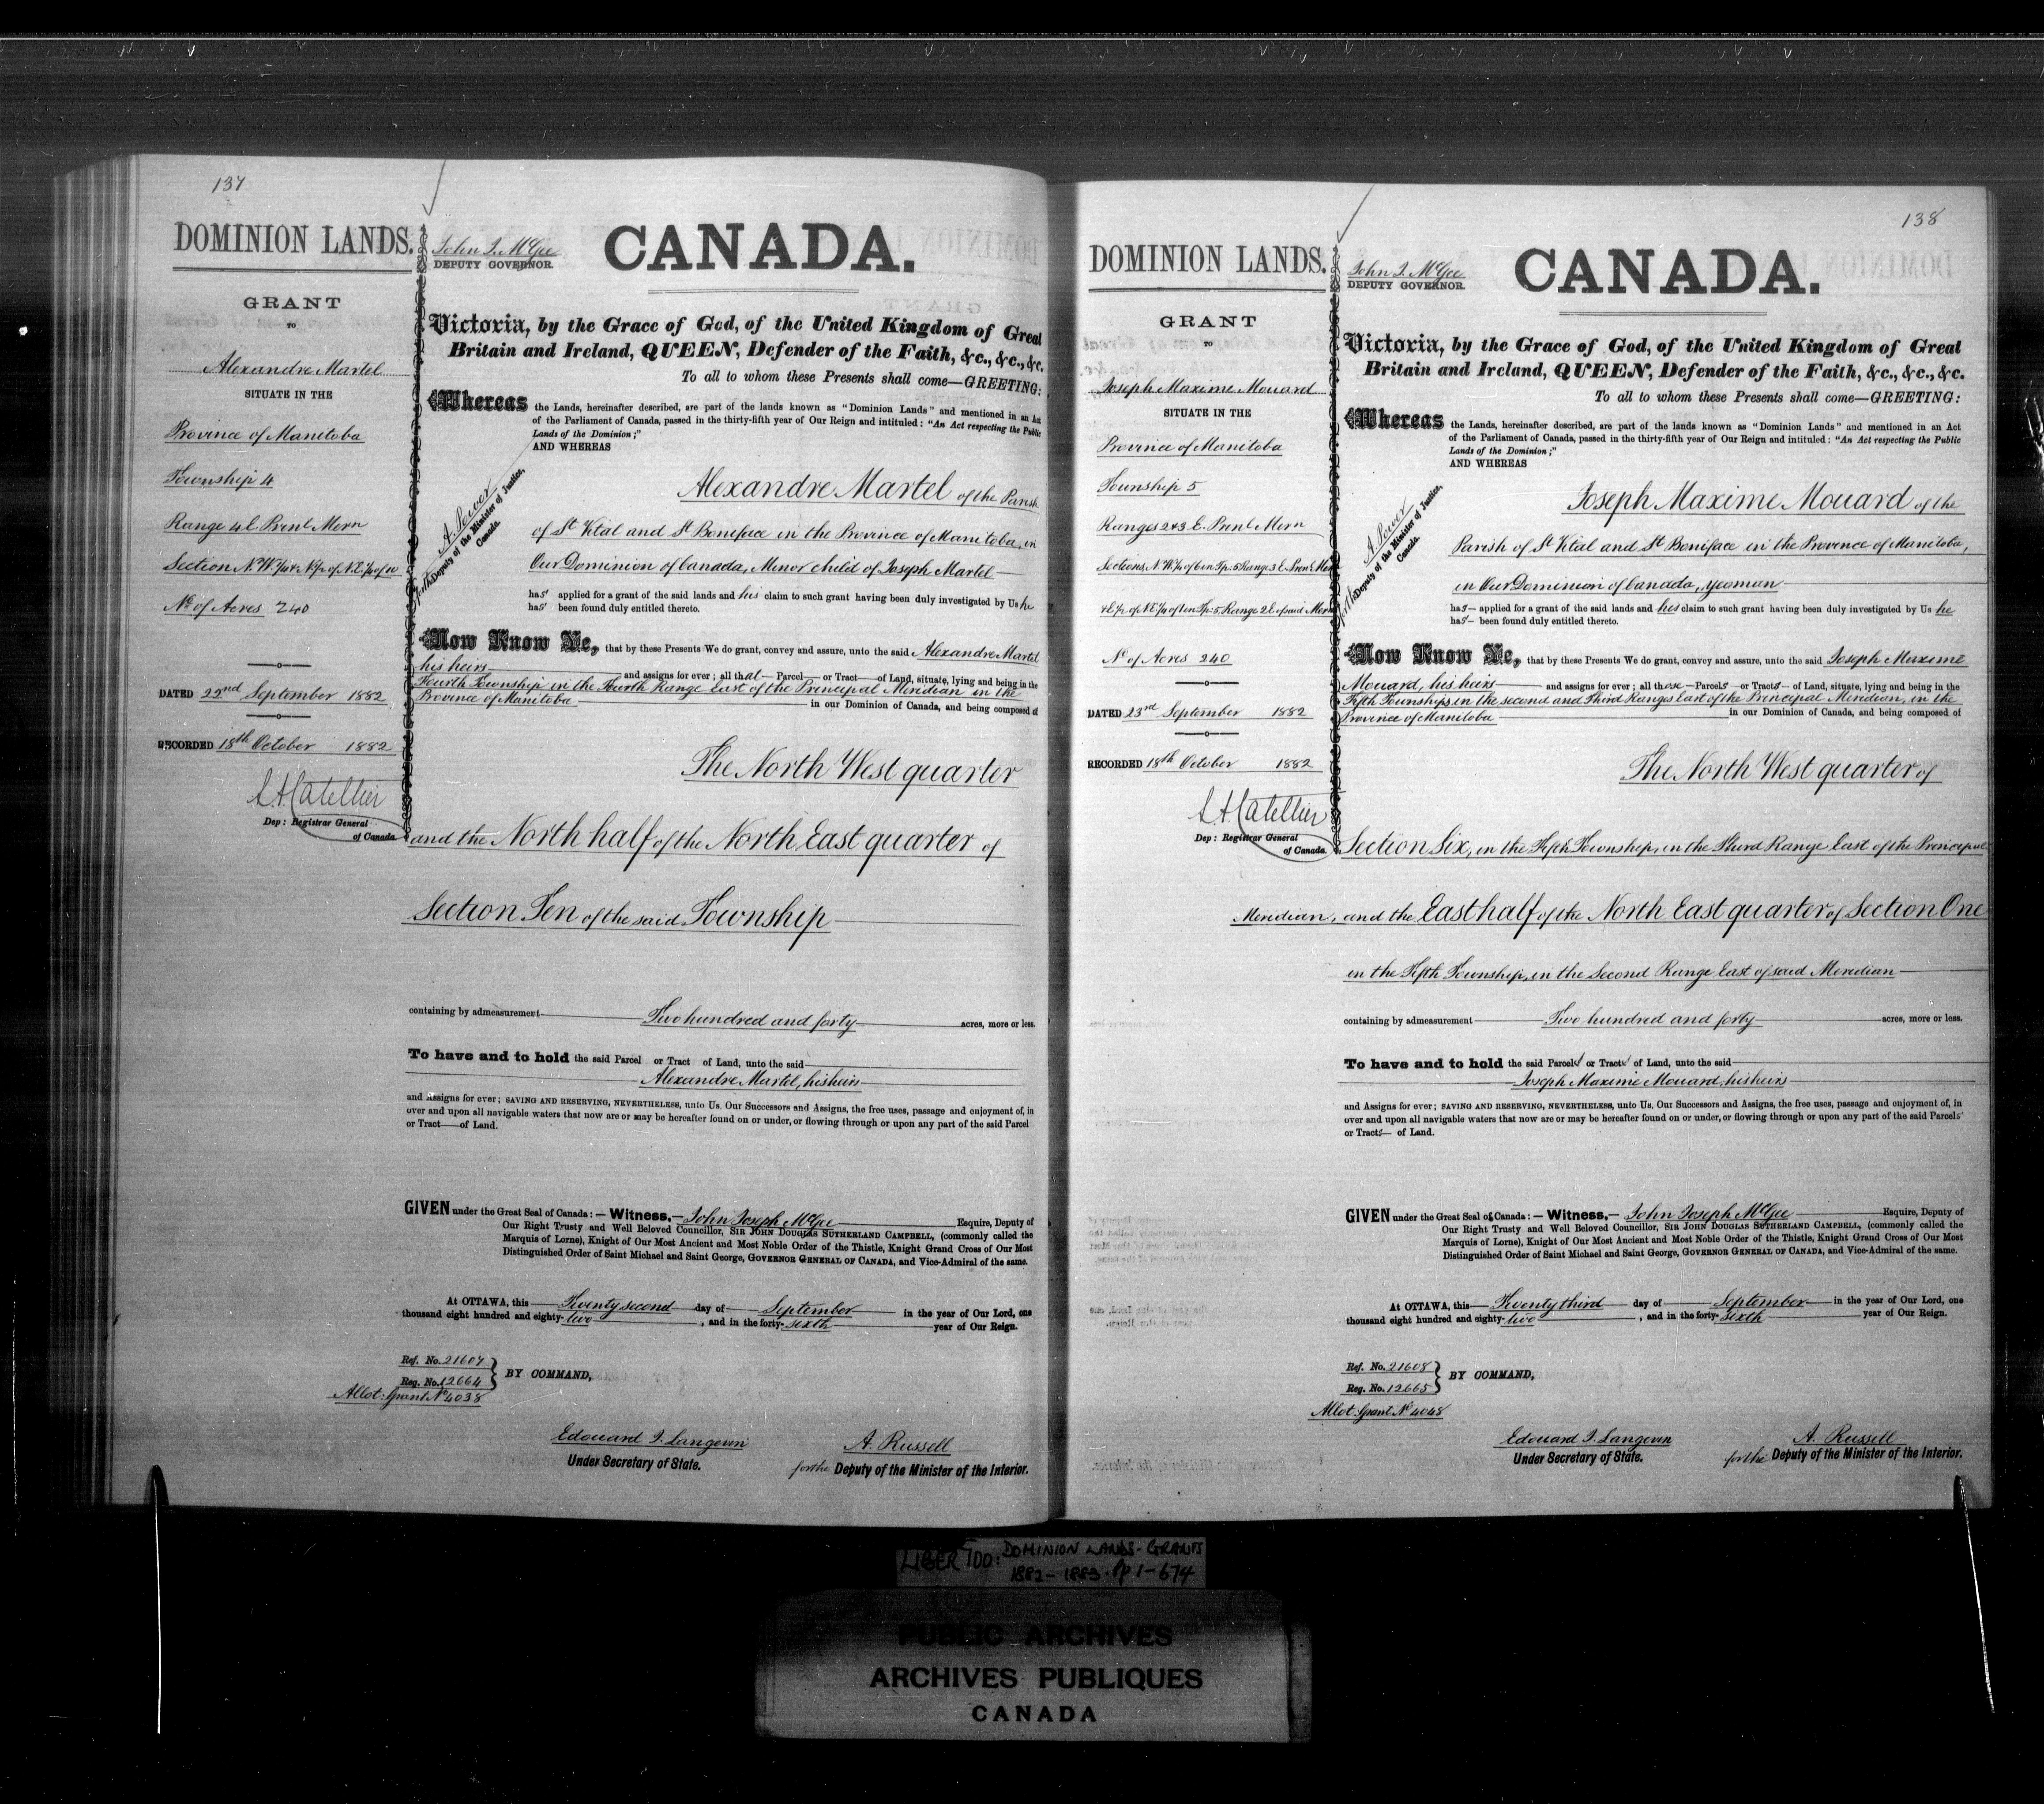 137
DOMINION LANDS.
GRANT
TO
Alexandre Martel
SITUATE IN THE
Province of Manitoba
Township 4
Range 4 E. Prinl Mern
Section N.W. 1/4 & N 1/2 of N.E. 1/4 of 10
No of Acres 240
DATED 22nd September 1882
RECORDED 18th October 1882
L.A. Catellier
Dep: Registrar General
of Canada.
John J. McGee
DEPUTY GOVERNOR.
CANADA.
Victoria, by the Grace of God, of the United Kingdom of Great
Britain and Ireland, QUEEN, Defender of the Faith, &c., &c., &c.
To all to whom these Presents shall come—GREETING:
Whereas the Lands, hereinafter described, are part of the lands known as "Dominion Lands" and mentioned in an Act
of the Parliament of Canada, passed in the thirty-fifth year of Our Reign and intituled: "An Act respecting the Public
Lands of the Dominion;"
AND WHEREAS
A. Power
for the Deputy of the Minister of Justice,
Canada.
Alexandre Martel of the Parish
of St Vital and St Boniface in the Province of Manitoba, in
Our Dominion of Canada, Minor child of Joseph Martel
has applied for a grant of the said lands and his claim to such grant having been duly investigated by Us he
has been found duly entitled thereto.
Now Know Ye, that by these Presents We do grant, convey and assure, unto the said Alexandre Martel
his heirs and assigns for ever; all that Parcel or Tract of Land, situate, lying and being in the
Fourth Township in the Fourth Range East of the Principal Meridian in the
Province of Manitoba in our Dominion of Canada, and being composed of
The North West quarter
and the North half of the North East quarter of
Section Ten of the said Township
containing by admeasurement Two hundred and forty acres, more or less.
To have and to hold the said Parcel or Tract of Land, unto the said
Alexandre Martel, his heirs
and Assigns for ever; SAVING AND RESERVING, NEVERTHELESS, unto Us, Our Successors and Assigns, the free uses, passage and enjoyment of, in
over and upon all navigable waters that now are or may be hereafter found on or under, or flowing through or upon any part of the said Parcel
or Tract of Land.
GIVEN under the Great Seal of Canada:—Witness,—John Joseph McGee Esquire, Deputy of
Our Right Trusty and Well Beloved Councillor, SIR JOHN DOUGLAS SUTHERLAND CAMPBELL, (commonly called the
Marquis of Lorne), Knight of Our Most Ancient and Most Noble Order of the Thistle, Knight Grand Cross of Our Most
Distinguished Order of Saint Michael and Saint George, GOVERNOR GENERAL OF CANADA, and Vice-Admiral of the same.
At OTTAWA, this Twenty second day of September in the year of Our Lord, one
thousand eight hundred and eighty-two, and in the forty-sixth year of Our Reign.
Ref. No. 21607
Reg. No. 12664
BY COMMAND,
Allot: Grant No 4038
Edouard J. Langevin
Under Secretary of State.
A. Russell
for the Deputy of the Minister of the Interior.
138
DOMINION LANDS.
GRANT
TO
Joseph Maxime Mouard
SITUATE IN THE
Province of Manitoba
Township 5
Ranges 2 & 3 E. Prinl Mern
Sections N.W. 1/4 of 6 in Tp. 5 Range 3 E. Prinl Mern
& E 1/2 of N.E. 1/4 of 1 in Tp. 5, Range 2 E. of said Mern
No of Acres 240
DATED 23rd September 1882
RECORDED 18th October 1882
L.A. Catellier
Dep: Registrar General
of Canada.
John J. McGee
DEPUTY GOVERNOR.
CANADA.
Victoria, by the Grace of God, of the United Kingdom of Great
Britain and Ireland, QUEEN, Defender of the Faith, &c., &c., &c.
To all to whom these Presents shall come—GREETING:
Whereas the Lands, hereinafter described, are part of the lands known as "Dominion Lands" and mentioned in an Act
of the Parliament of Canada, passed in the thirty-fifth year of Our Reign and intituled: "An Act respecting the Public
Lands of the Dominion;"
AND WHEREAS
A. Power
for the Deputy of the Minister of Justice,
Canada.
Joseph Maxime Mouard of the
Parish of St Vital and St Boniface in the Province of Manitoba,
in Our Dominion of Canada, yeoman
has applied for a grant of the said lands and his claim to such grant having been duly investigated by Us he
has been found duly entitled thereto.
Now Know Ye, that by these Presents We do grant, convey and assure, unto the said Joseph Maxime
Mouard, his heirs and assigns for ever; all those Parcels or Tracts of Land, situate, lying and being in the
Fifth Townships in the second and Third Ranges East of the Principal Meridian, in the
Province of Manitoba in our Dominion of Canada, and being composed of
The North West quarter of
Section Six, in the Fifth Township, in the Third Range East of the Principal
Meridian, and the East half of the North East quarter of Section One
in the Fifth Township, in the Second Range East of said Meridian
containing by admeasurement Two hundred and forty acres, more or less.
To have and to hold the said Parcels or Tracts of Land, unto the said
Joseph Maxime Mouard, his heirs
and Assigns for ever; SAVING AND RESERVING, NEVERTHELESS, unto Us, Our Successors and Assigns, the free uses, passage and enjoyment of, in
over and upon all navigable waters that now are or may be hereafter found on or under, or flowing through or upon any part of the said Parcels
or Tracts of Land.
GIVEN under the Great Seal of Canada:—Witness,—John Joseph McGee Esquire, Deputy of
Our Right Trusty and Well Beloved Councillor, SIR JOHN DOUGLAS SUTHERLAND CAMPBELL, (commonly called the
Marquis of Lorne), Knight of Our Most Ancient and Most Noble Order of the Thistle, Knight Grand Cross of Our Most
Distinguished Order of Saint Michael and Saint George, GOVERNOR GENERAL OF CANADA, and Vice-Admiral of the same.
At OTTAWA, this Twenty third day of September in the year of Our Lord, one
thousand eight hundred and eighty-two, and in the forty-sixth year of Our Reign.
Ref. No. 21608
Reg. No. 12665
BY COMMAND,
Allot: Grant No 4048
Edouard J. Langevin
Under Secretary of State.
A. Russell
for the Deputy of the Minister of the Interior.
LIBER 100: DOMINION LANDS-GRANTS
1882-1883. Pp 1-674
PUBLIC ARCHIVES
ARCHIVES PUBLIQUES
CANADA